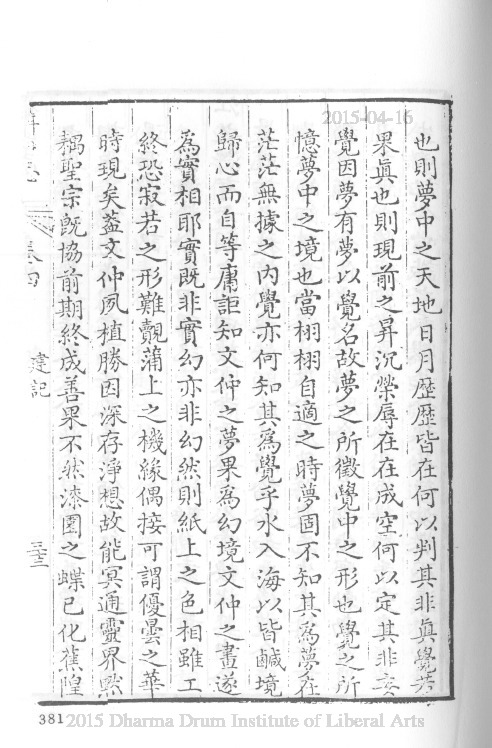 2015-04-16
也則夢中之天地日月歷歷皆在何以判其非眞覺若
果眞也則現前之昇沉榮辱在在成空何以定其非妄
覺因夢有夢以覺名故夢之所徵覺中之形也覺之所
憶夢中之境也當栩栩自適之時夢固不知其爲夢在
茫茫無據之內覺亦何知其爲覺乎水入海以皆鹹境
歸心而自等庸詎知文仲之夢果爲幻境文仲之畫遂
爲實相耶實既非實幻亦非幻然則紙上之色相雖工
終恐寂若之形難覿蒲上之機緣偶接可謂優曇之華
時現矣葢文仲夙植勝因深存淨想故能冥通靈界黙
耦聖宗旣協前期終成善果不然漆園之蝶已化蕉隍
卷四
建記
三三
381
2015 Dharma Drum Institute of Liberal Arts